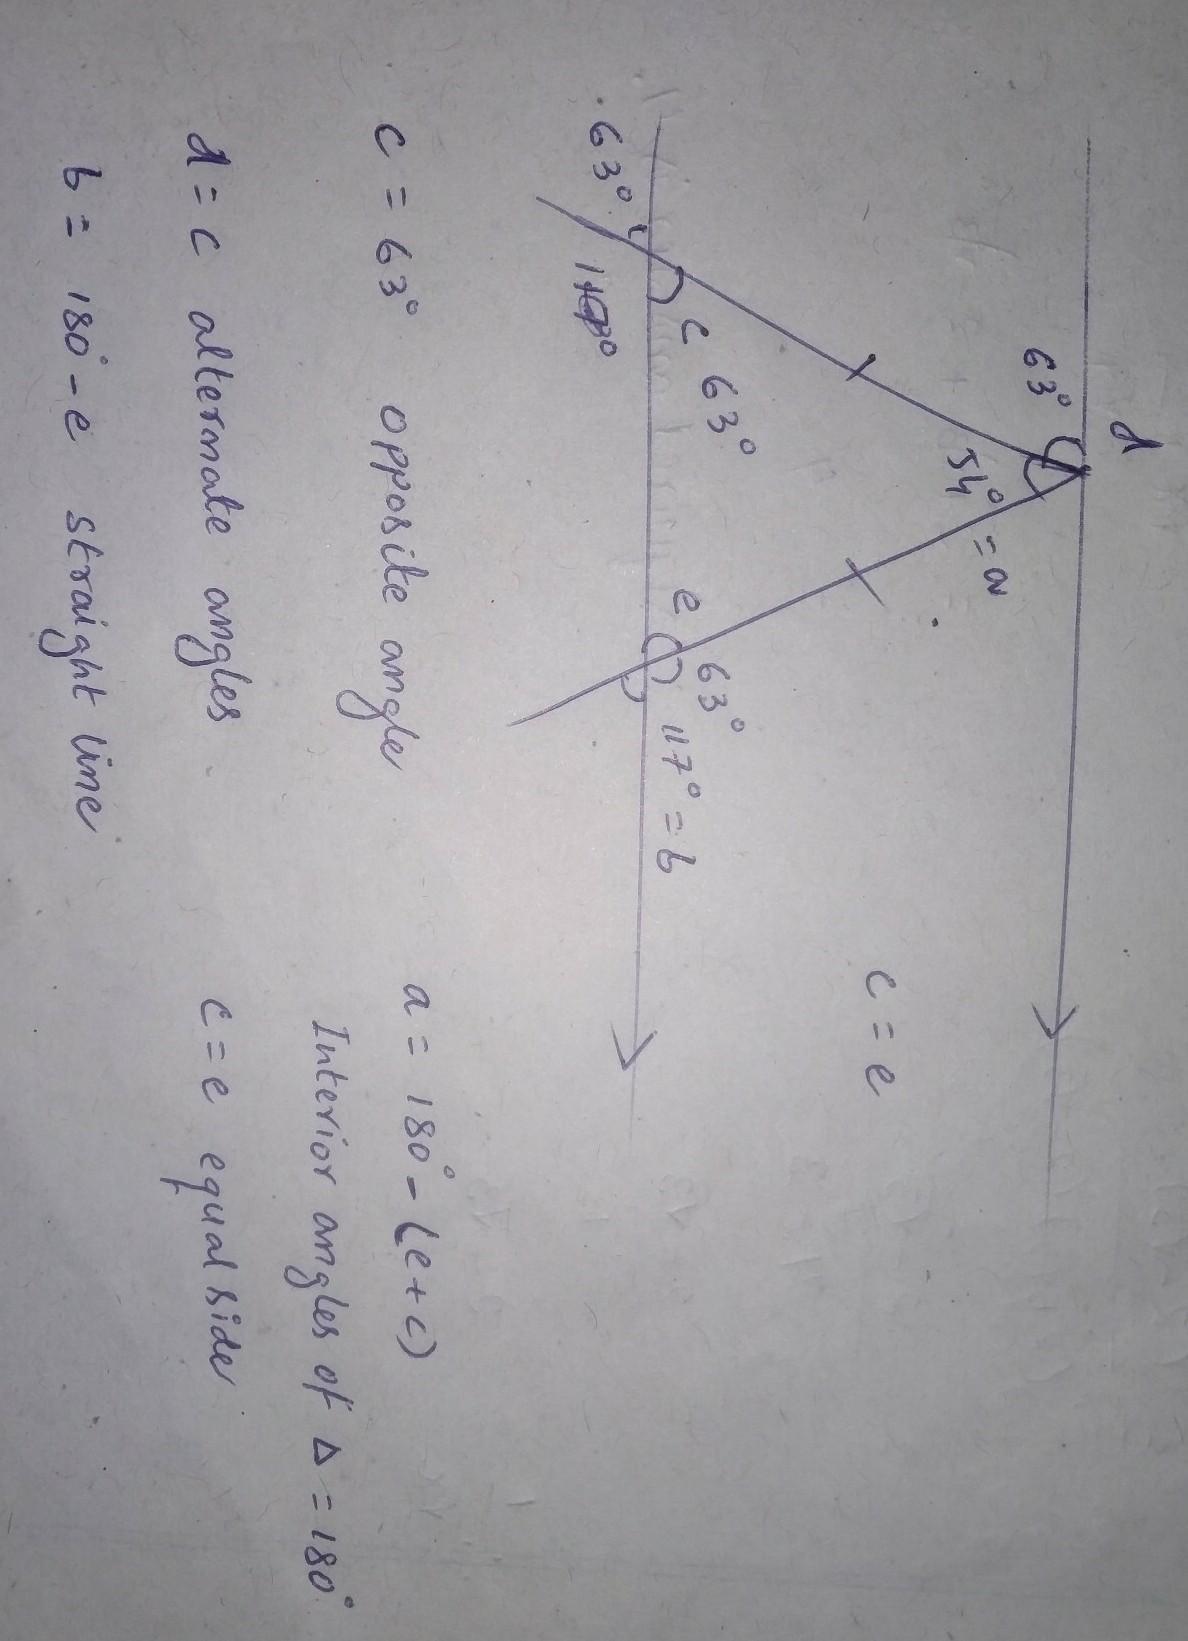 d
63°
54° = a
c = e
c 63°
e 63°
117° = b
63°
c = 63° opposite angle
d = c alternate angles
b = 180° - e straight line
a = 180° - (e + c)
Interior angles of Δ = 180°
c = e equal side